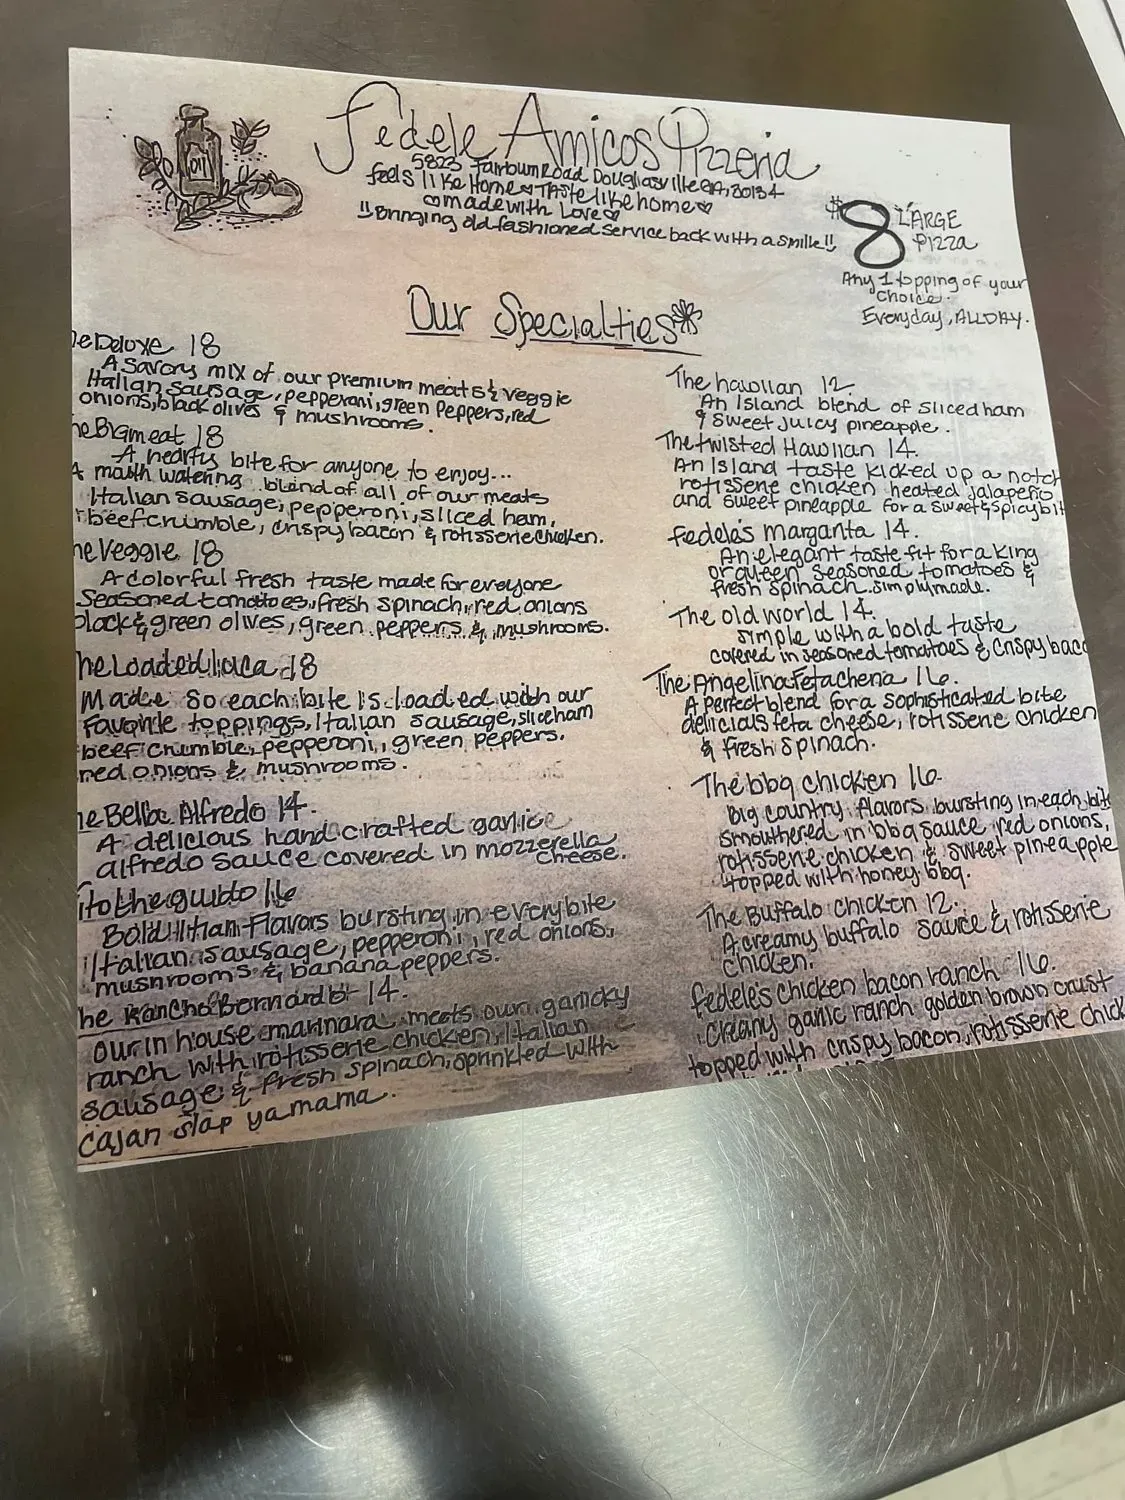 OIL
Fedele Amicos Pizzeria
5823 Fairburn Road Douglasville GA, 30134
feels like Home Taste like home
made with Love
!! Bringing old fashioned service back with a smile!!
$8 LARGE
Pizza
Any 1 topping of your
choice.
Everyday, ALLDAY.
Our Specialties
he Deluxe 18
A savory mix of our premium meats & veggie
Italian sausage, pepperoni, green peppers, red
onions, black olives & mushrooms.
he Bigmeat 18
A hearty bite for anyone to enjoy...
A mouth watering blend of all of our meats
Italian sausage, pepperoni, sliced ham,
beef crumble, crispy bacon & rotisserie chicken.
he Veggie 18
A colorful fresh taste made for everyone
seasoned tomatoes, fresh spinach, red onions
black & green olives, green peppers & mushrooms.
he Loaded 18
Made so each bite is loaded with our
favorite toppings, Italian sausage, slice ham
beef crumble, pepperoni, green peppers.
red onions & mushrooms.
he Bella Alfredo 14.
A delicious hand crafted garlic
alfredo sauce covered in mozzerella
cheese.
ito the guido 16
Bold Itlian Flavors bursting in every bite
Italian sausage, pepperoni, red onions,
mushrooms & banana peppers.
he Rancho 14.
our in house marinara meets our garlicky
ranch with rotisserie chicken, Italian
sausage & fresh spinach, sprinkled with
cajan slap yamama.
The hawiian 12.
An Island blend of sliced ham
& sweet juicy pineapple.
The twisted Hawiian 14.
An Island taste kicked up a notch
rotissene chicken heated jalapeño
and sweet pineapple for a sweet & spicy bit
Fedele's margarita 14.
An elegant taste fit for a king
or queen seasoned tomatoes &
fresh spinach. simply made.
The old world 14.
simple with a bold taste
covered in seasoned tomatoes & crispy baco
The Angelina Fetachena 16.
A perfect blend for a sophisticated bite
delicious feta cheese, rotisserie chicken
& fresh spinach.
The bbq chicken 16.
Big country flavors bursting in each bite
smouthered in bbq sauce red onions,
rotisserie chicken & sweet pineapple
topped with honey bbq.
The Buffalo chicken 12.
A creamy buffalo sauce & rotisserie
chicken.
fedele's chicken bacon ranch 16.
Creamy garlic ranch golden brown crust
topped with crispy bacon, rotisserie chick